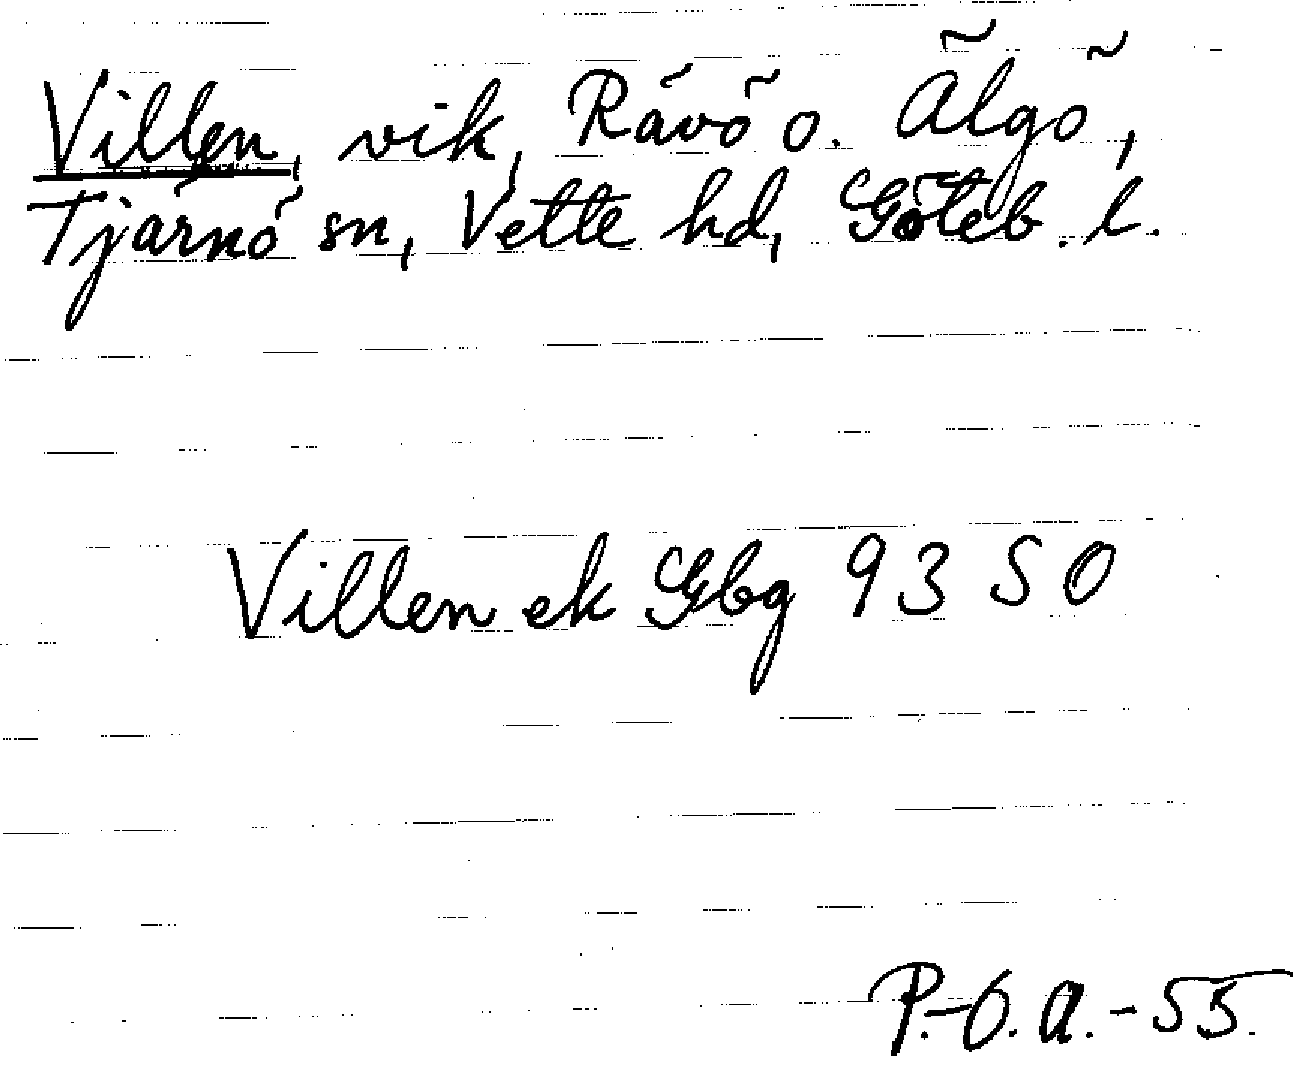 Villen, vik, Rävö o. Älgö,
Tjärnö sn, Vette hd, Göteb. l.
Villen ek Gbg 93 SO
P.-O. A. -55.